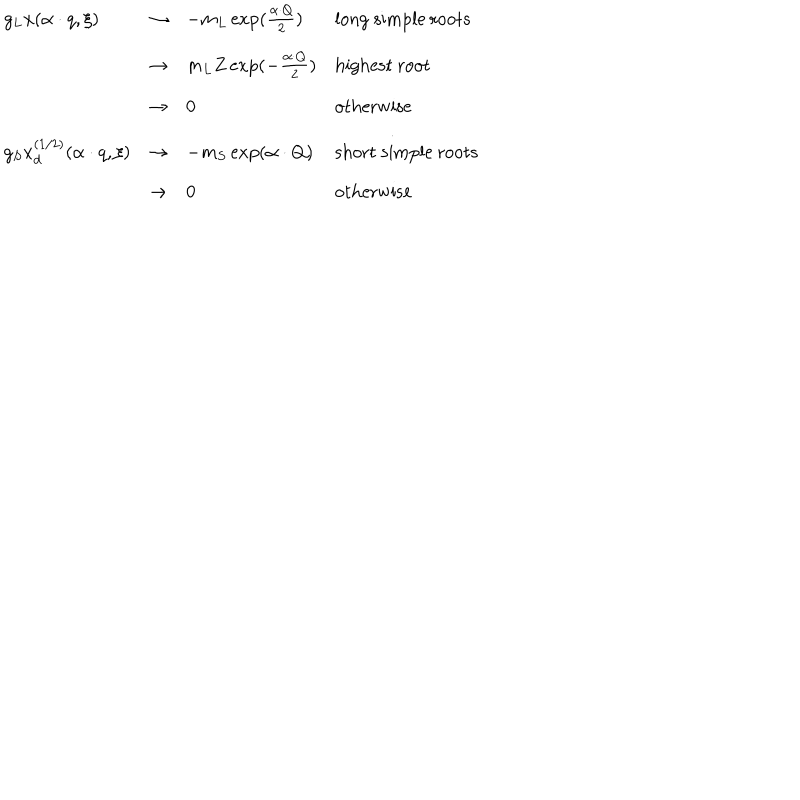 g_L x(α · q, ξ) → −m_L exp(α·Q/2) long simple roots
→ m_L Z exp(−α·Q/2) highest root
→ 0 otherwise
g_S x_d^(1/2)(α · q, ξ) → −m_S exp(α · Q) short simple roots
→ 0 otherwise